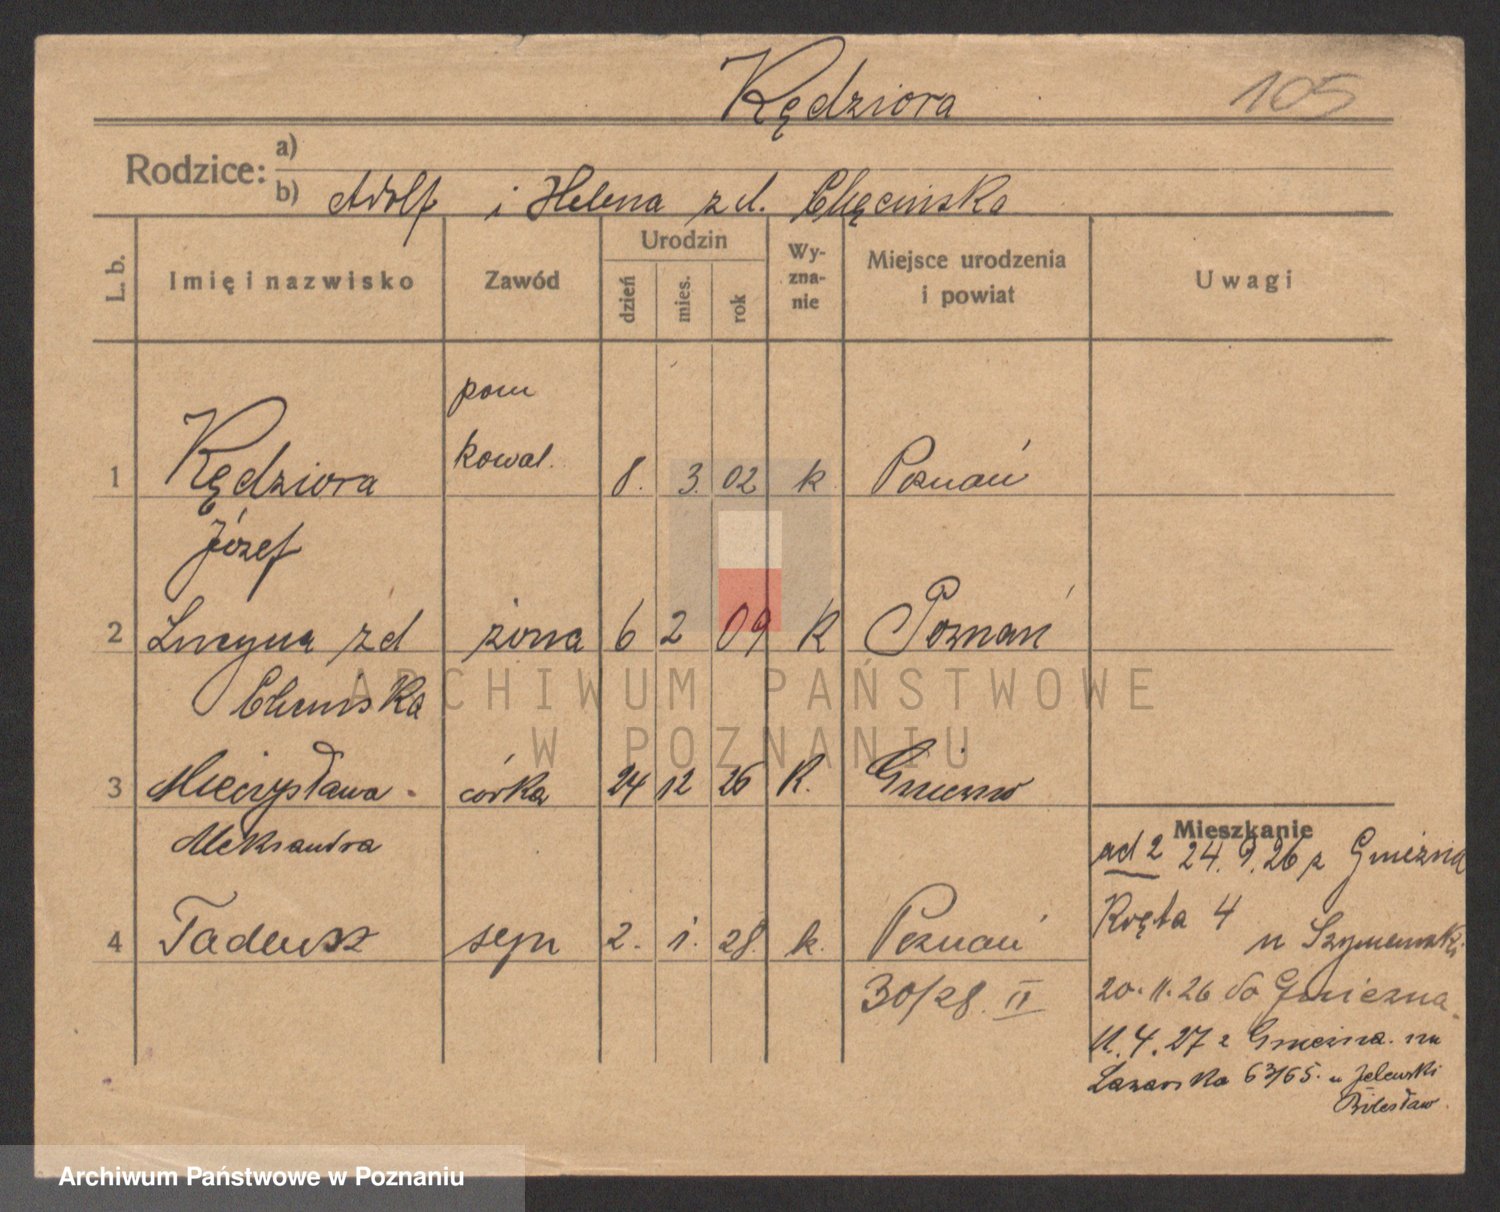 Kędziora 105
Rodzice: a)
b) Adolf i Helena z d. Chęcińska
L. b. Imię i nazwisko Zawód Urodzin dzień mies. rok Wyznanie Miejsce urodzenia i powiat Uwagi
pom
kowal.
1 Kędziora 8. 3. 02 k Poznań
Józef
2 Lucyna z d żona 6 2 09 k Poznań
3 Mieczysława córka 24 12 26 k. Gniezno
Aleksandra
Mieszkanie
ad 2 24.9.26 z Gniezna
Kręta 4
4 Tadeusz syn 2. 1. 28. k. Poznań
u
30/28. II
20.11.26 do Gniezna
11.4.27 z Gniezna. na
Łazarska 63/65. u
Bolesław.
ARCHIWUM PAŃSTWOWE
W POZNANIU
Archiwum Państwowe w Poznaniu